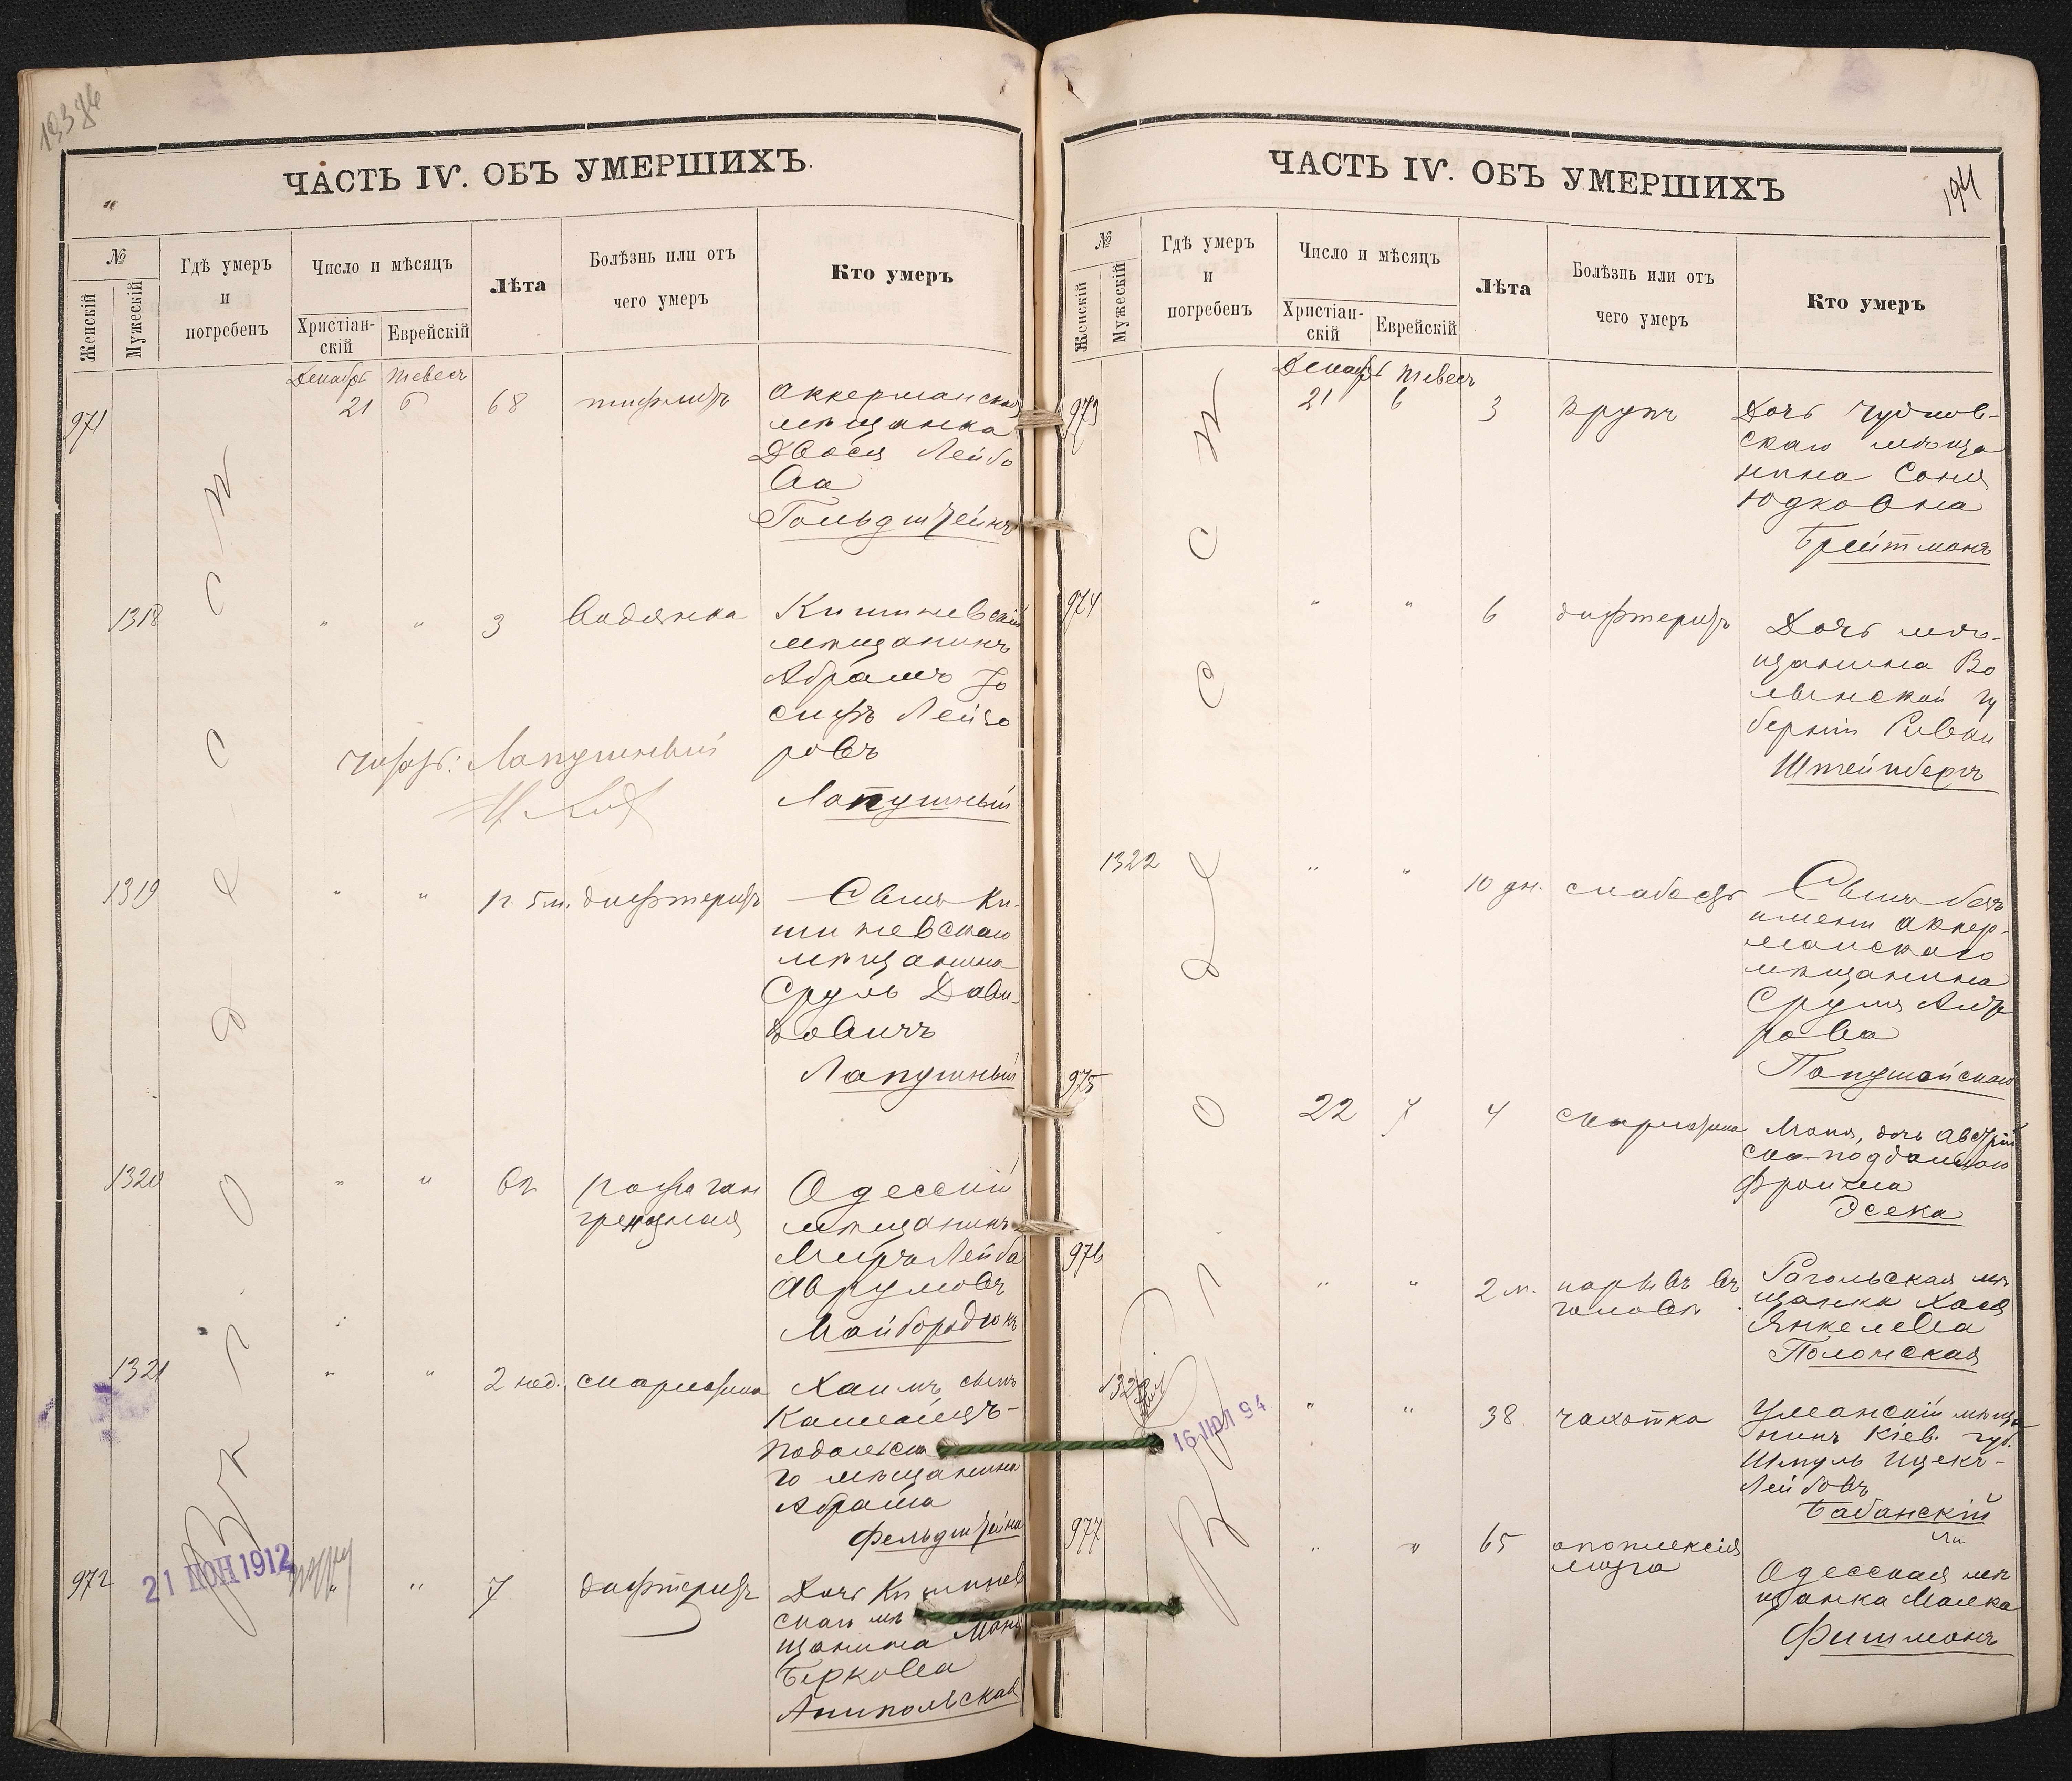 ЧАСТЬ IV. ОБЪ УМЕРШИХЪ.
№
Женскій
Мужескій
Гдѣ умеръ
и
погребенъ
Число и мѣсяцъ
Христіан-
скій
Еврейскій
Лѣта
Болѣзнь или отъ
чего умеръ
Кто умеръ
Въ г. Одессѣ
971
Декабрь Тевесъ
21 6
68
Аккерманская
мѣщанка
Двося Лейбо
ва
Гольдштейнъ
1318
" "
3
Водянка
Кишиневскій
мѣщанинъ
Абрамъ Іо
сифъ Лейзо
ровъ
Лапушный
Лапушный
1319
" "
1 г. 5 м.
дифтеритъ
Сынъ Ки-
шиневскаго
мѣщанина
Сруль Дави-
довичъ
Лапушный
1320
" "
Одесскій
мѣщанинъ
Меиръ Лейба
Аврумовъ
Майбородюкъ
1321
" "
2 нед.
скарлатина
Хаимъ сынъ
Каменецъ-
подольска
го мѣщанина
Абрама
Фельдштейна
972
21 ІЮН 1912
" "
7
дифтеритъ
Дочь Кишинев
скаго мѣ
щанина Маня
Беркова
Анипольская
ЧАСТЬ IV. ОБЪ УМЕРШИХЪ
194
№
Женскій
Мужескій
Гдѣ умеръ
и
погребенъ
Число и мѣсяцъ
Христіан-
скій
Еврейскій
Лѣта
Болѣзнь или отъ
чего умеръ
Кто умеръ
Въ г. Одессѣ
973
Декабрь Тевесъ
21 6
3
Крупъ
Дочь Чуднов-
скаго мѣща
нина Соня
Юдковна
Брейтманъ
974
" "
6
дифтеритъ
Дочь мѣ-
щанина Во
лынской гу
берніи Ривка
Штейнбергъ
1322
" "
10 дн.
слабость
Сынъ безъ
имени аккер-
манскаго
мѣщанина
Сруля
рова
Папушойскаго
975
22 7
4
скарлатина
Маня, дочь Австрій
ско-подданнаго
Фроима
Эсека
976
" "
2 м.
нарывъ въ
головѣ
мѣ
щанка Хася
Янкелева
Полонская
1323
16 ІЮЛ 94
" "
38
чахотка
Уманскій мѣща
нинъ Кіев. губ.
Шмуль Ицекъ-
Лейбовъ
Бабанскій
977
" "
65
апоплексія
мозга
Одесская мѣ
щанка Малка
Фишманъ